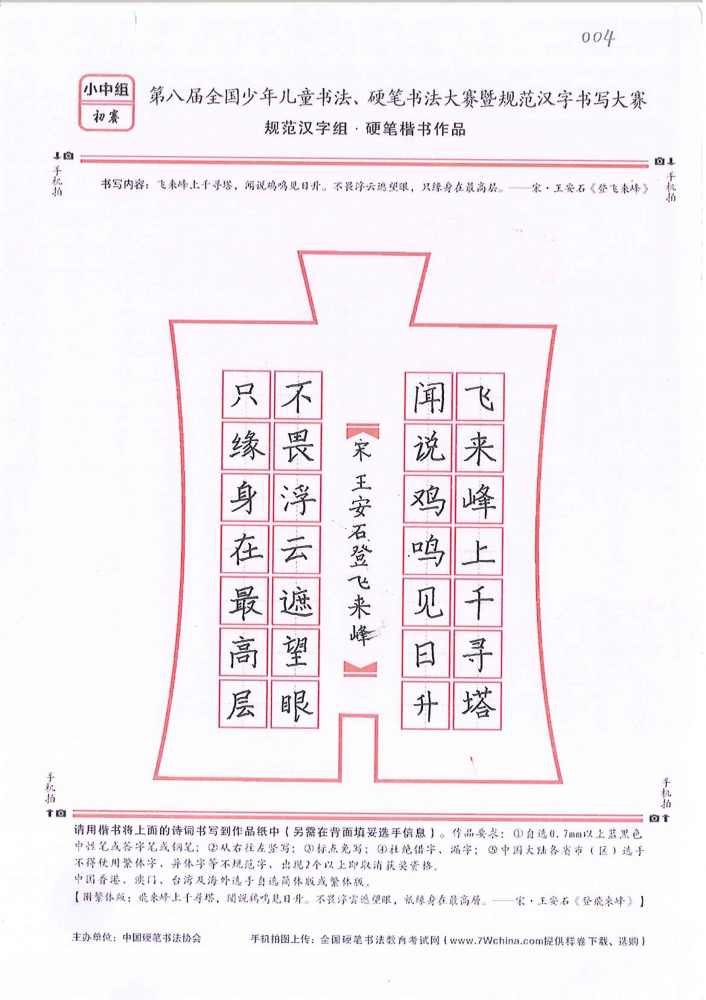 004
小中组
初赛
第八届全国少年儿童书法、硬笔书法大赛暨规范汉字书写大赛
规范汉字组·硬笔楷书作品
手机拍
手机拍
书写内容：飞来峰上千寻塔，闻说鸡鸣见日升。不畏浮云遮望眼，只缘身在最高层。——宋·王安石《登飞来峰》
飞来峰上千寻塔
闻说鸡鸣见日升
宋 王安石登飞来峰
不畏浮云遮望眼
只缘身在最高层
手机拍
手机拍
请用楷书将上面的诗词书写到作品纸中（另需在背面填妥选手信息）。作品要求：①自选0.7mm以上蓝黑色
中性笔或签字笔或钢笔；②从右往左竖写；③标点免写；④杜绝错字、漏字；⑤中国大陆各省市（区）选手
不得使用繁体字、异体字等不规范字，出现2个以上即取消获奖资格。
中国香港、澳门、台湾及海外选手自选简体版或繁体版。
【附繁体版：飛來峰上千尋塔，聞說鷄鳴見日升。不畏浮雲遮望眼，祇緣身在最高層。——宋·王安石《登飛來峰》】
主办单位：中国硬笔书法协会
手机拍图上传：全国硬笔书法教育考试网（www.7Wchina.com提供样卷下载、选购）